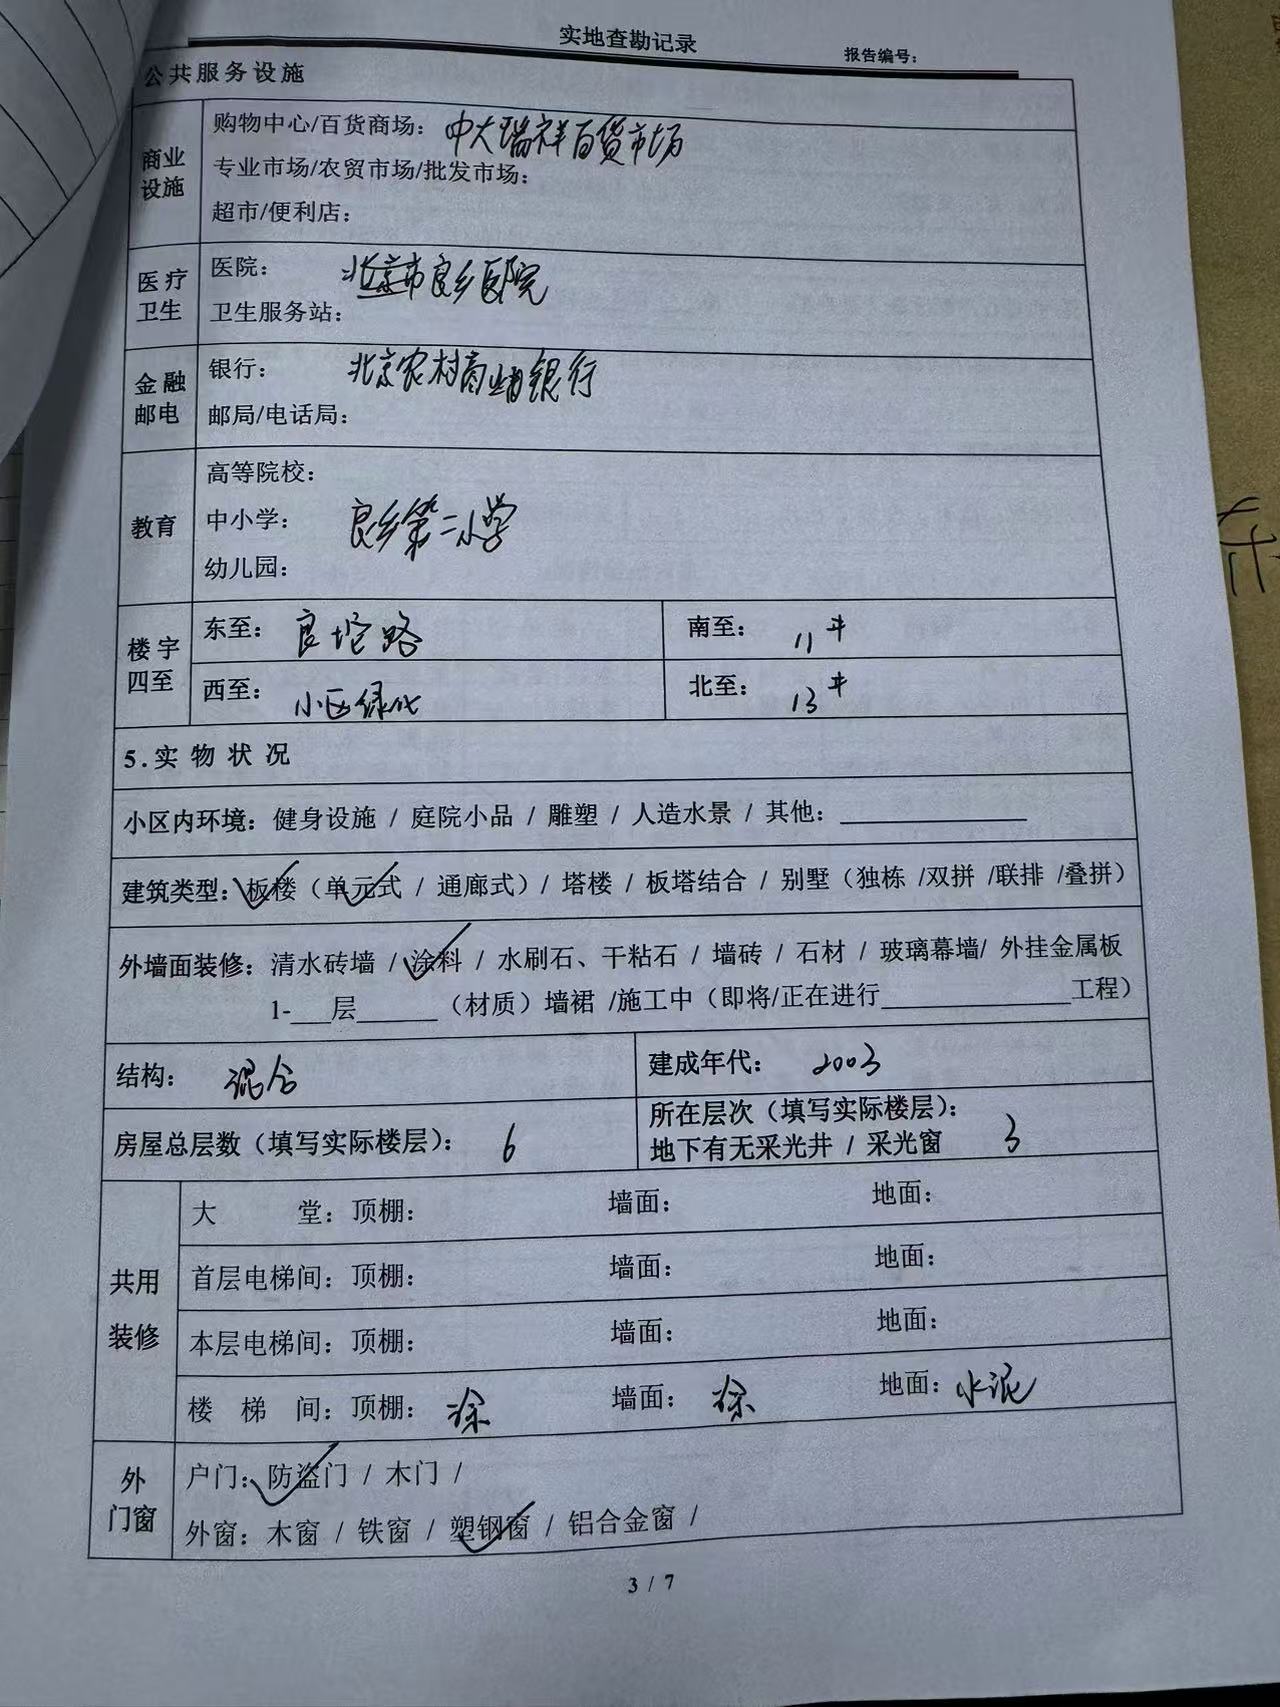 实地查勘记录
报告编号：
公共服务设施
商业设施
购物中心/百货商场：中大瑞祥百货市场
专业市场/农贸市场/批发市场：
超市/便利店：
医疗卫生
医院：北京市良乡医院
卫生服务站：
金融邮电
银行：北京农村商业银行
邮局/电话局：
教育
高等院校：
中小学：良乡第二小学
幼儿园：
楼宇四至
东至：良坨路 南至：11#
西至：小区绿化 北至：13#
5.实物状况
小区内环境：健身设施 / 庭院小品 / 雕塑 / 人造水景 / 其他：
建筑类型：板楼（单元式 / 通廊式）/ 塔楼 / 板塔结合 / 别墅（独栋 /双拼 /联排 /叠拼）
外墙面装修：清水砖墙 / 涂料 / 水刷石、干粘石 / 墙砖 / 石材 / 玻璃幕墙/ 外挂金属板
1-___层______（材质）墙裙 /施工中（即将/正在进行______________工程）
结构：混合 建成年代：2003
房屋总层数（填写实际楼层）：6 所在层次（填写实际楼层）：
地下有无采光井 / 采光窗 3
共用装修
大堂：顶棚： 墙面： 地面：
首层电梯间：顶棚： 墙面： 地面：
本层电梯间：顶棚： 墙面： 地面：
楼梯间：顶棚：涂 墙面：涂 地面：水泥
外门窗
户门：防盗门 / 木门 /
外窗：木窗 / 铁窗 / 塑钢窗 / 铝合金窗 /
3 / 7